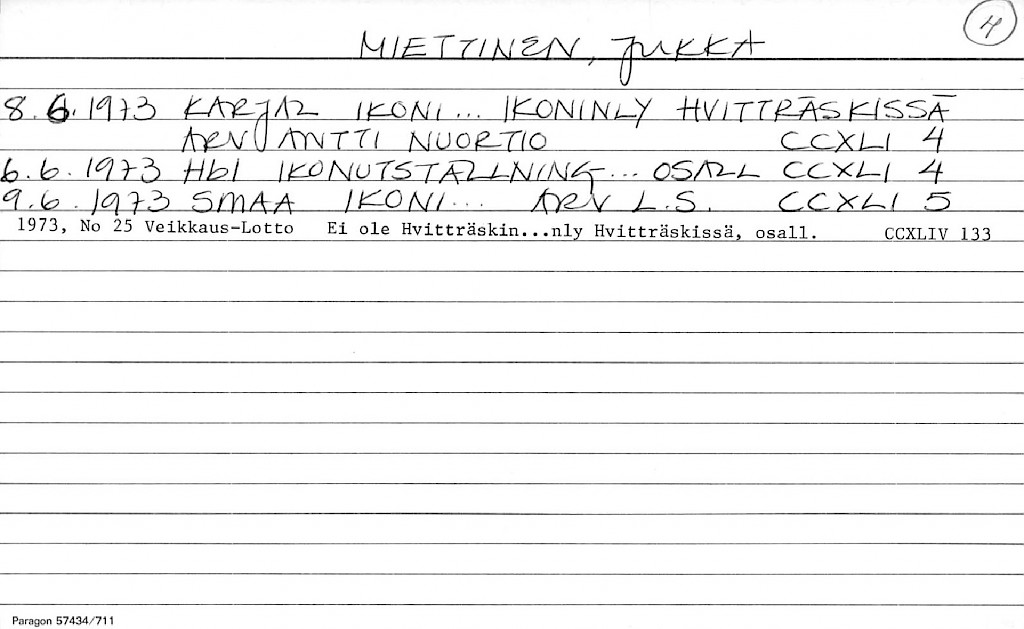 4
MIETTINEN, JUKKA
8.6.1973 KARJAL IKONI... IKONINLY HVITTRÄSKISSÄ
ARV ANTTI NUORTIO CCXLI 4
6.6.1973 Hbl IKONUTSTÄLLNING... OSALL CCXLI 4
9.6.1973 SMAA IKONI... ARV L.S. CCXLI 5
1973, No 25 Veikkaus-Lotto Ei ole Hvitträskin...nly Hvitträskissä, osall. CCXLIV 133
Paragon 57434/711